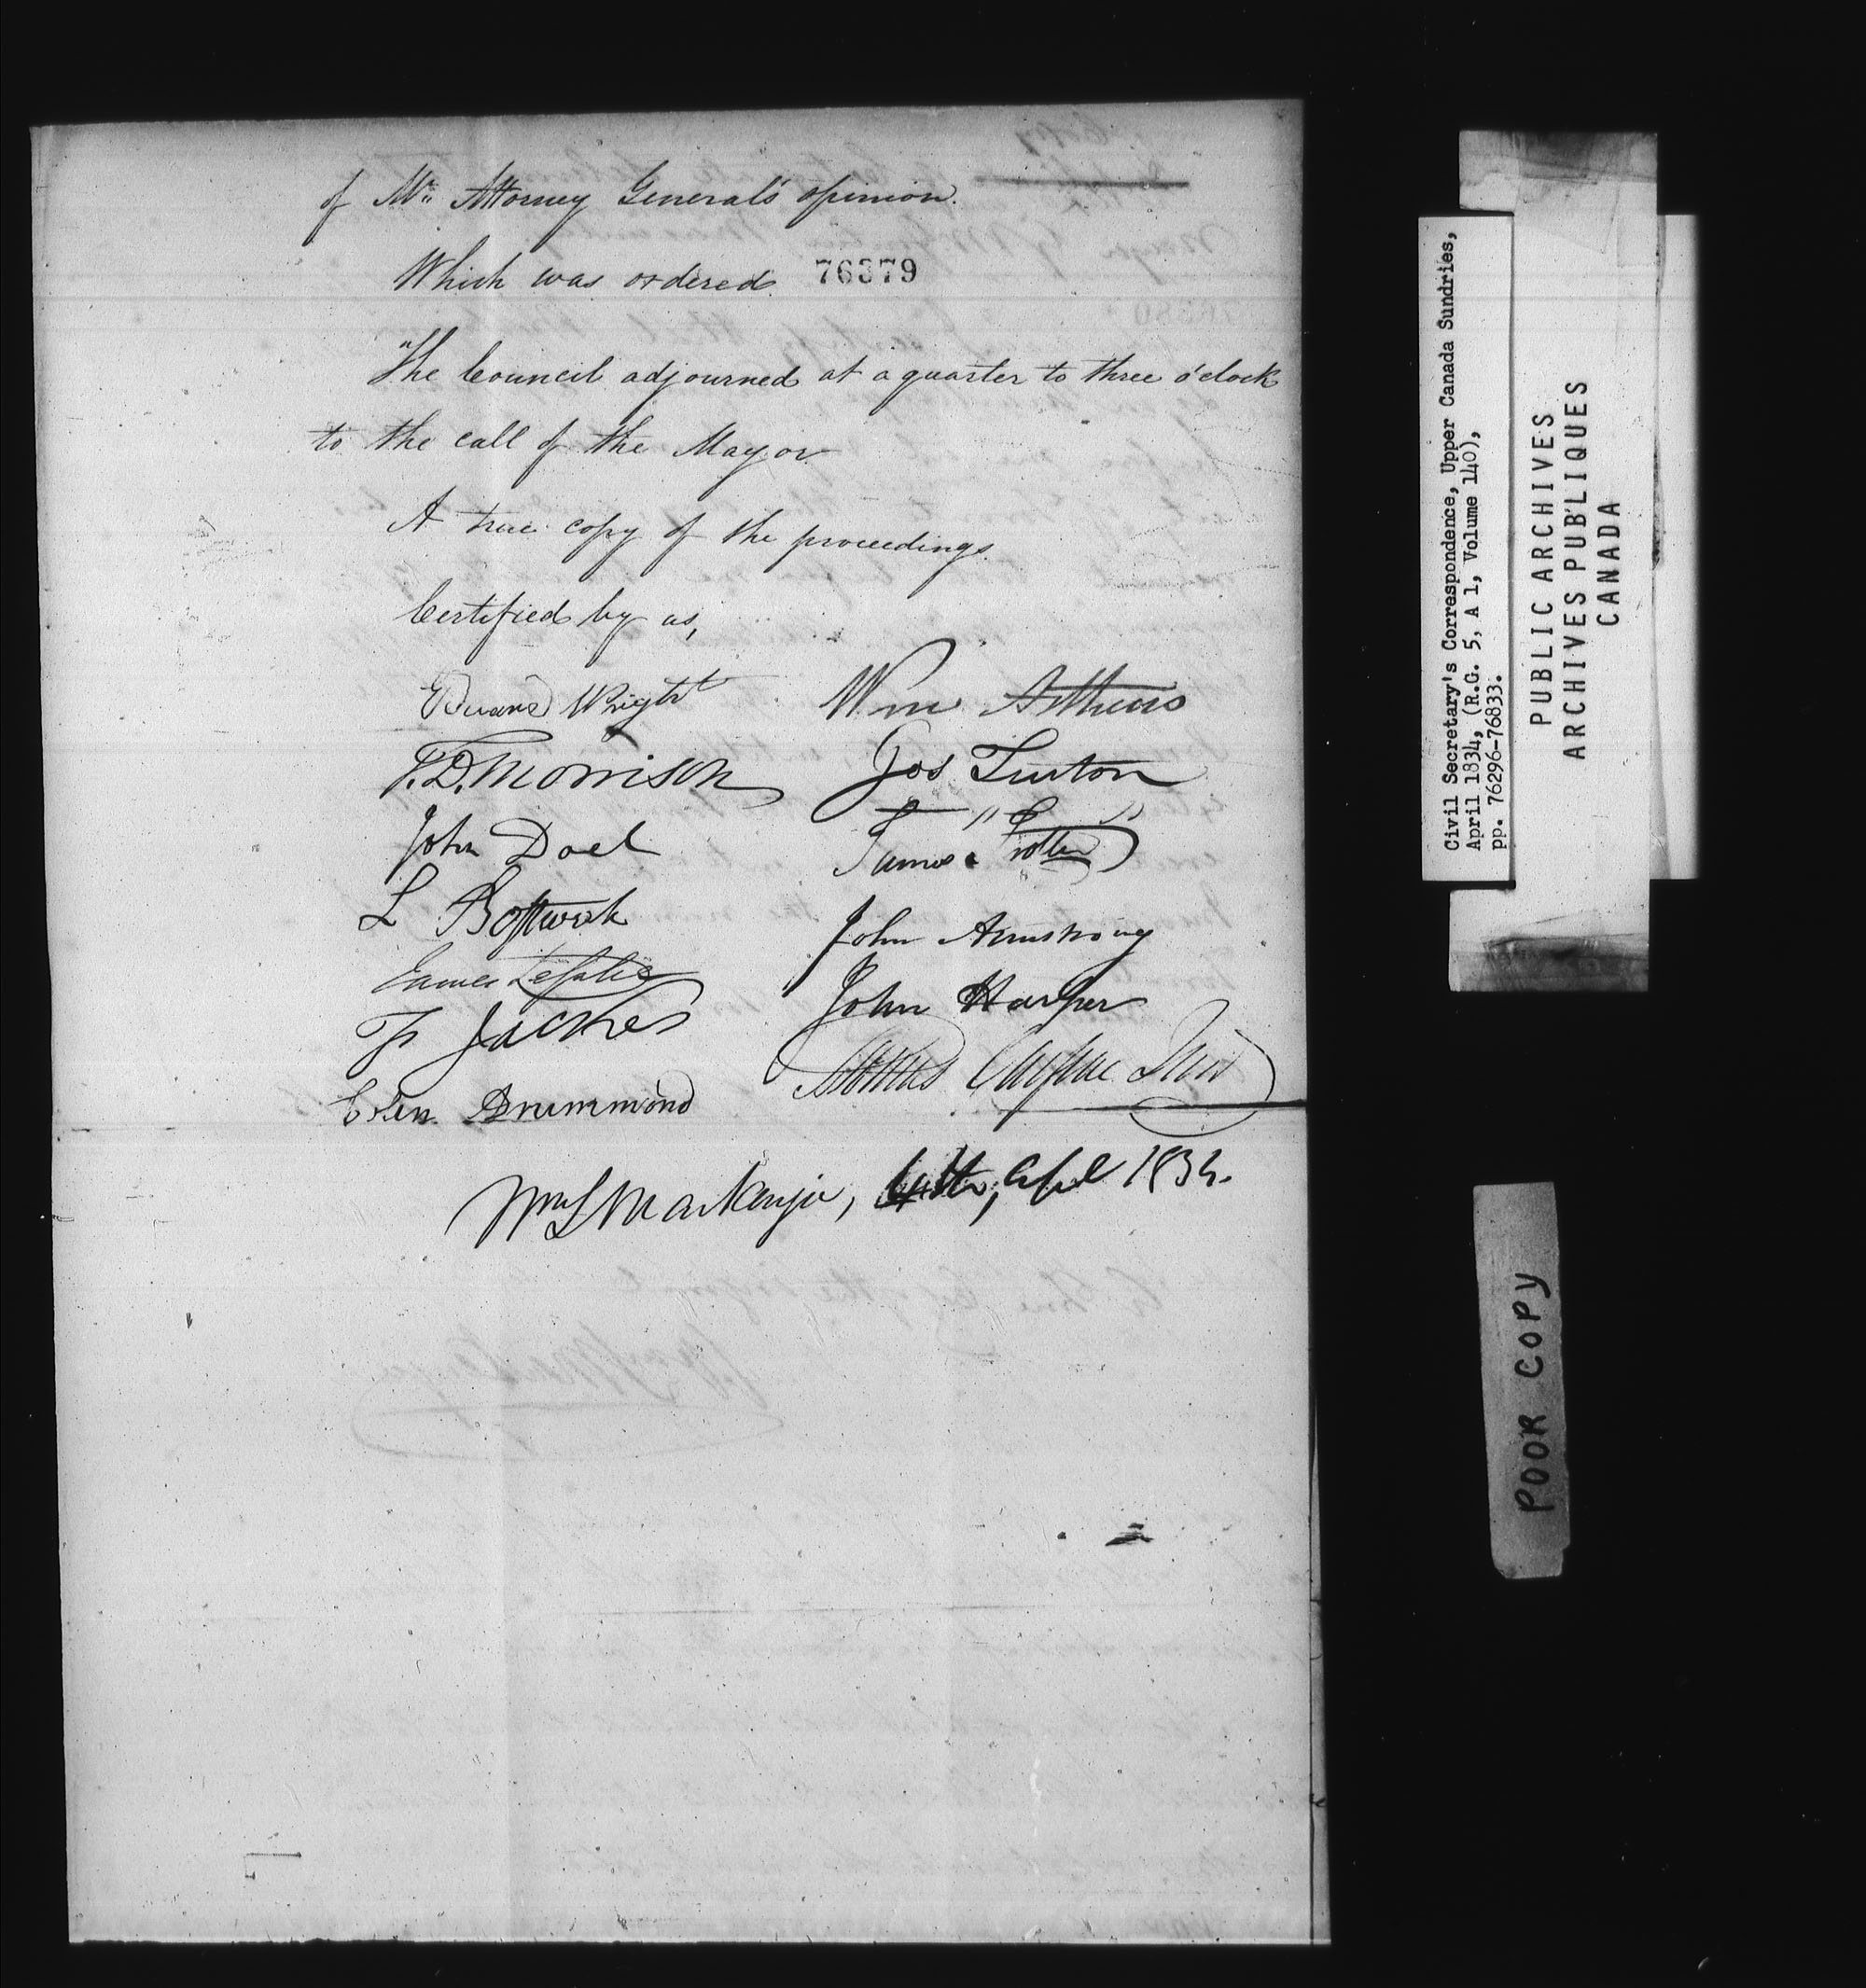 of Mr. Attorney General's opinion.
Which was ordered. 76379
"The Council adjourned at a quarter to three o'clock
to the call of the Mayor.
A true copy of the proceedings.
Certified by us,
Edward Wright
T.D. Morrison
John Doel
L Bostwick
James Lesslie
F. Jackes
Colin Drummond
Wm Arthurs
Jos Turton
James Trotter
John Armstrong
John Harper
Thomas Carfrae Junr
Wm L Mackenzie, April 1834.
Civil Secretary's Correspondence, Upper Canada Sundries,
April 1834, (R.G. 5, A 1, Volume 140),
pp. 76296-76833.
PUBLIC ARCHIVES
ARCHIVES PUBLIQUES
CANADA
POOR COPY